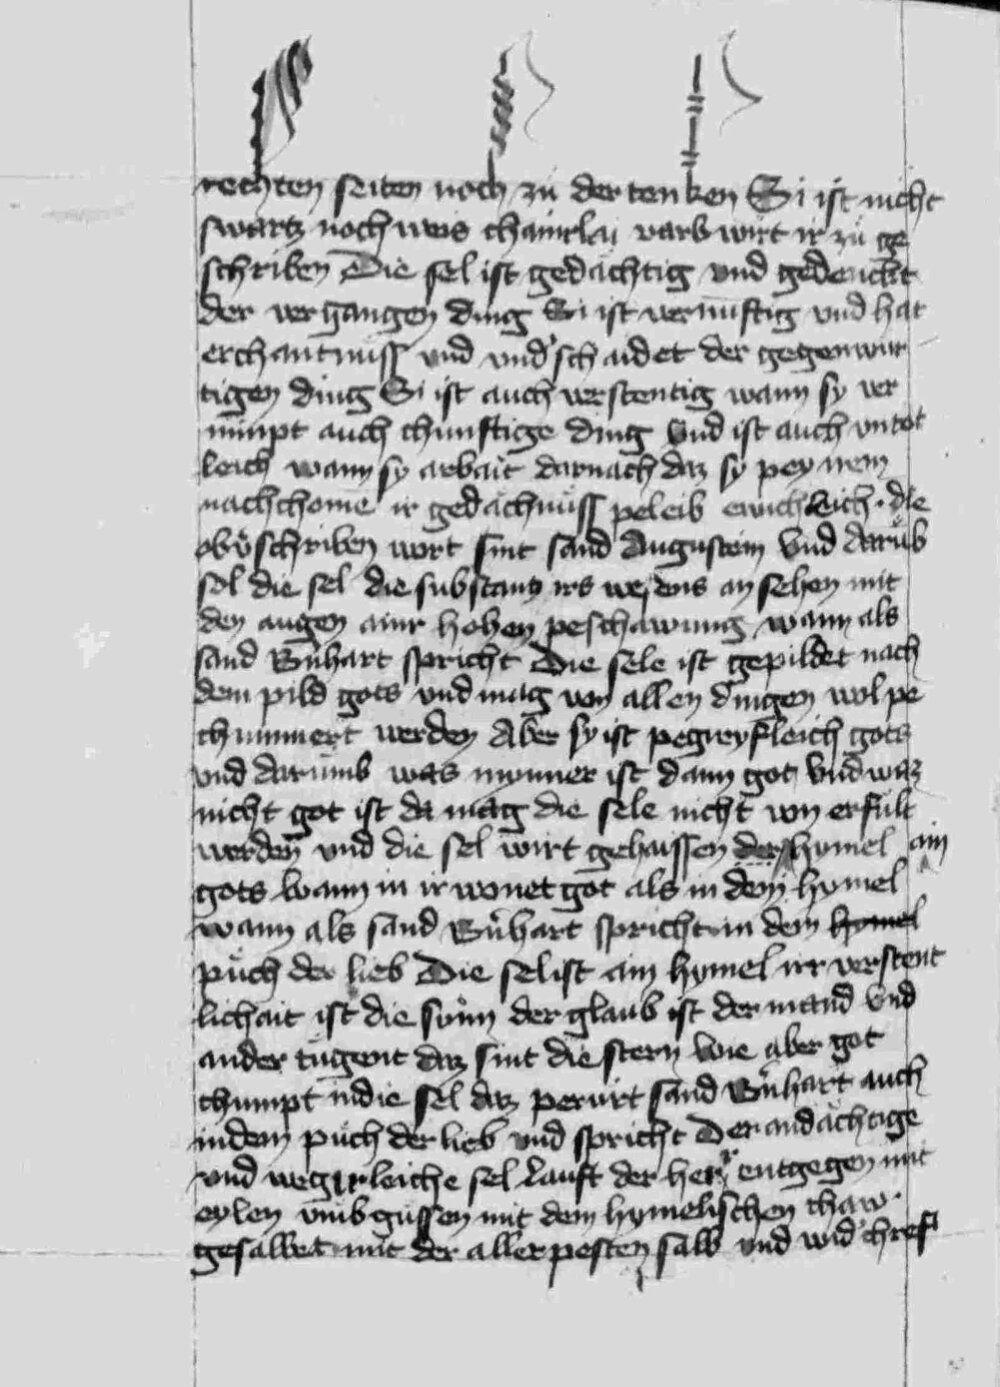 rechten seiten noch zu der tenken Si ist nicht
swartz noch weis chainrlai varb wirt ir zů ge
schriben Die sel ist gedächtig und gedenckt
der vergangen ding Si ist vernuftig und hat
erchantnuss und und'schaidet der gegenwur
tigen ding Si ist auch verstentig wann sy ver
nimpt auch chunftige ding Und ist auch untot
leich wann sy arbait darnach daz sy pey irem
nachchomē ir gedächnuss peleib ewichleich · die
obgeschriben wort sint sand Augustein Und darub
sol die sel die substantz irs wesens an sehen mit
den augen ainr hohen peschawung wann als
sand Bn̄hart spricht Die sele ist gepildet nach
dem pild gots und mag von allen dingen wol pe
chummert werden Aber sy ist pegreyfleich gots
und darumb was mynner ist dann got Und waz
nicht got ist da mag die sele nicht von erfült
werden und die sel wirt gehaissen der hymel ain
gots wann in ir wonet got als in dem hymel
wann als sand Bn̄hart spricht in dem hymel
půch der lieb Die sel ist ain hymel irr verstent
lichait ist die sunn der glaub ist der mand Und
ander tugent daz sint die stern wie aber got
chumpt in die sel daz perürt sand Bn̄hart auch
in dem půch der lieb und spricht Der andächtige
und wegirleiche sel lauft der herr entgegen mit
eylen umbgussen mit dem hymelischen thaw ·
gesalbet mit der aller pesten salb und wid' chrefl